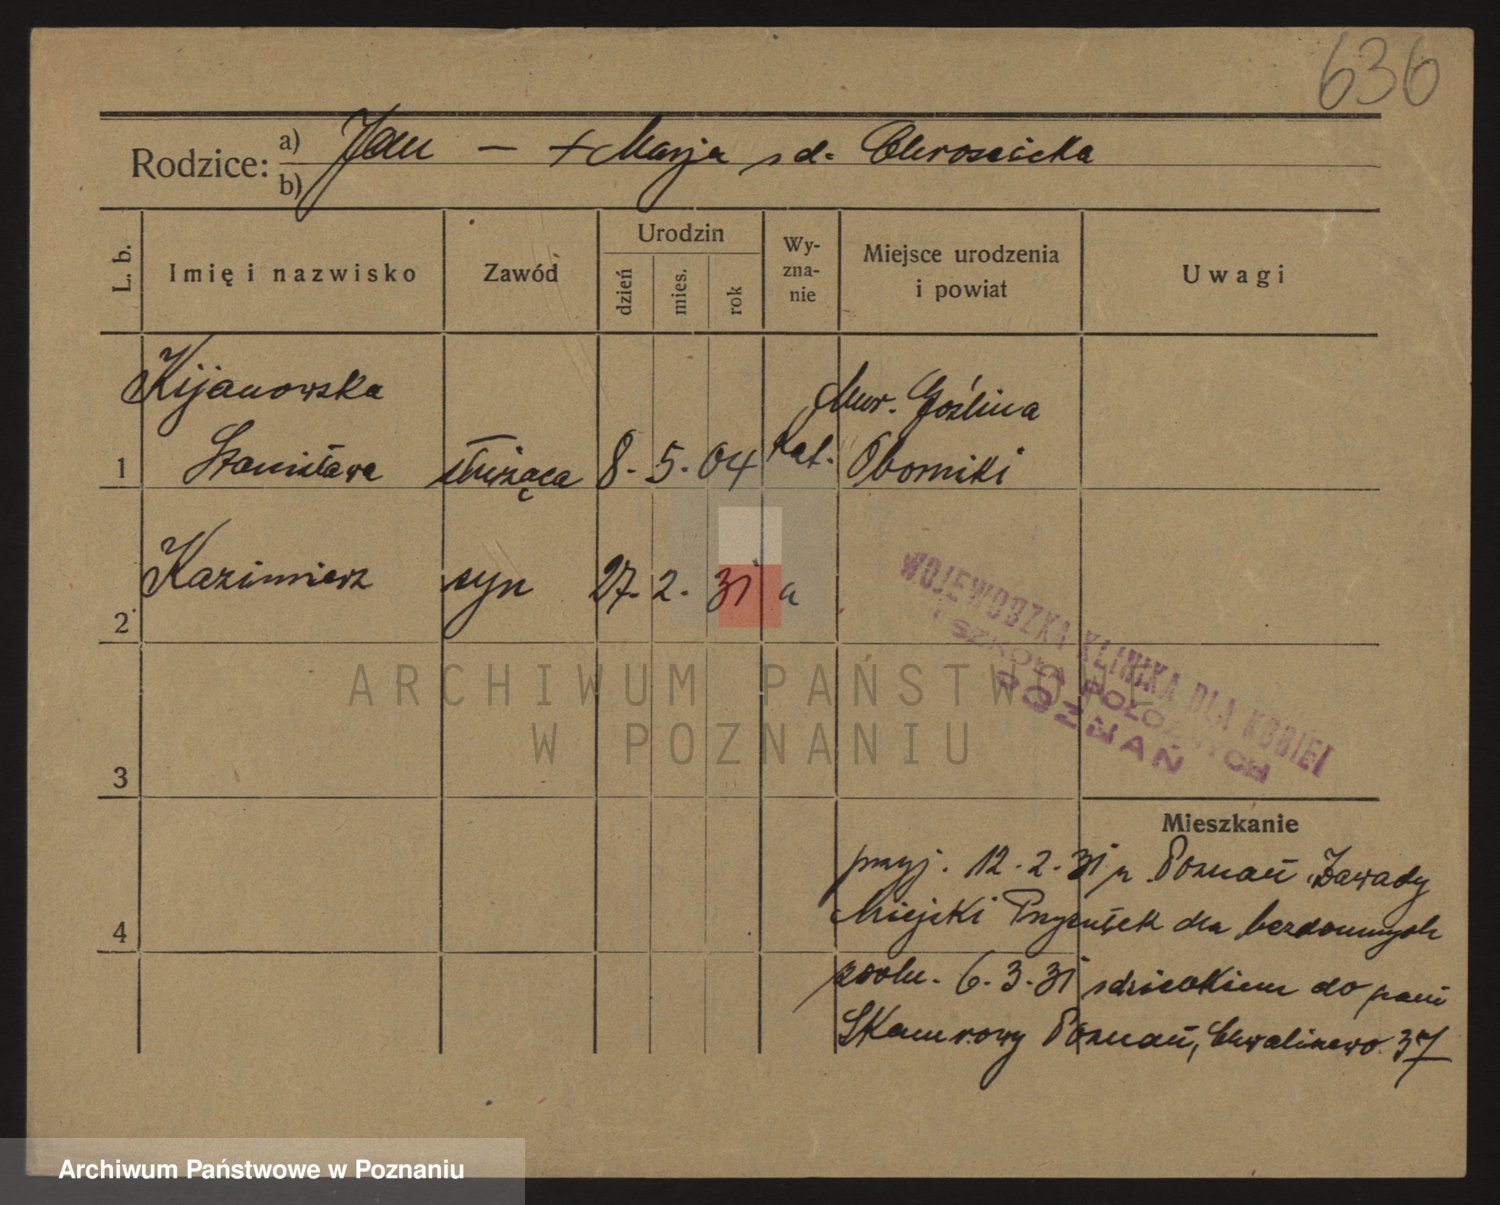 636
Rodzice: a) Jan — + Marja z d. Chrościcka
b)
L. b. Imię i nazwisko Zawód Urodzin dzień mies. rok Wyznanie Miejsce urodzenia i powiat Uwagi
Kijanowska Mur. Goślina
1 Stanisława służąca 8. 5. 04 kat. Oborniki
2 Kazimierz syn 27. 2. 31 "
WOJEWÓDZKA KLINIKA DLA KOBIET
I SZKOŁA POŁOŻNYCH
POZNAŃ
ARCHIWUM PAŃSTWOWE
W POZNANIU
3
Mieszkanie
przyj. 12. 2. 31 z Poznań, Zawady
4 Miejski Przytułek dla bezdomnych
zwoln. 6. 3. 31 z dzieckiem do pani
Poznań, 37
Archiwum Państwowe w Poznaniu